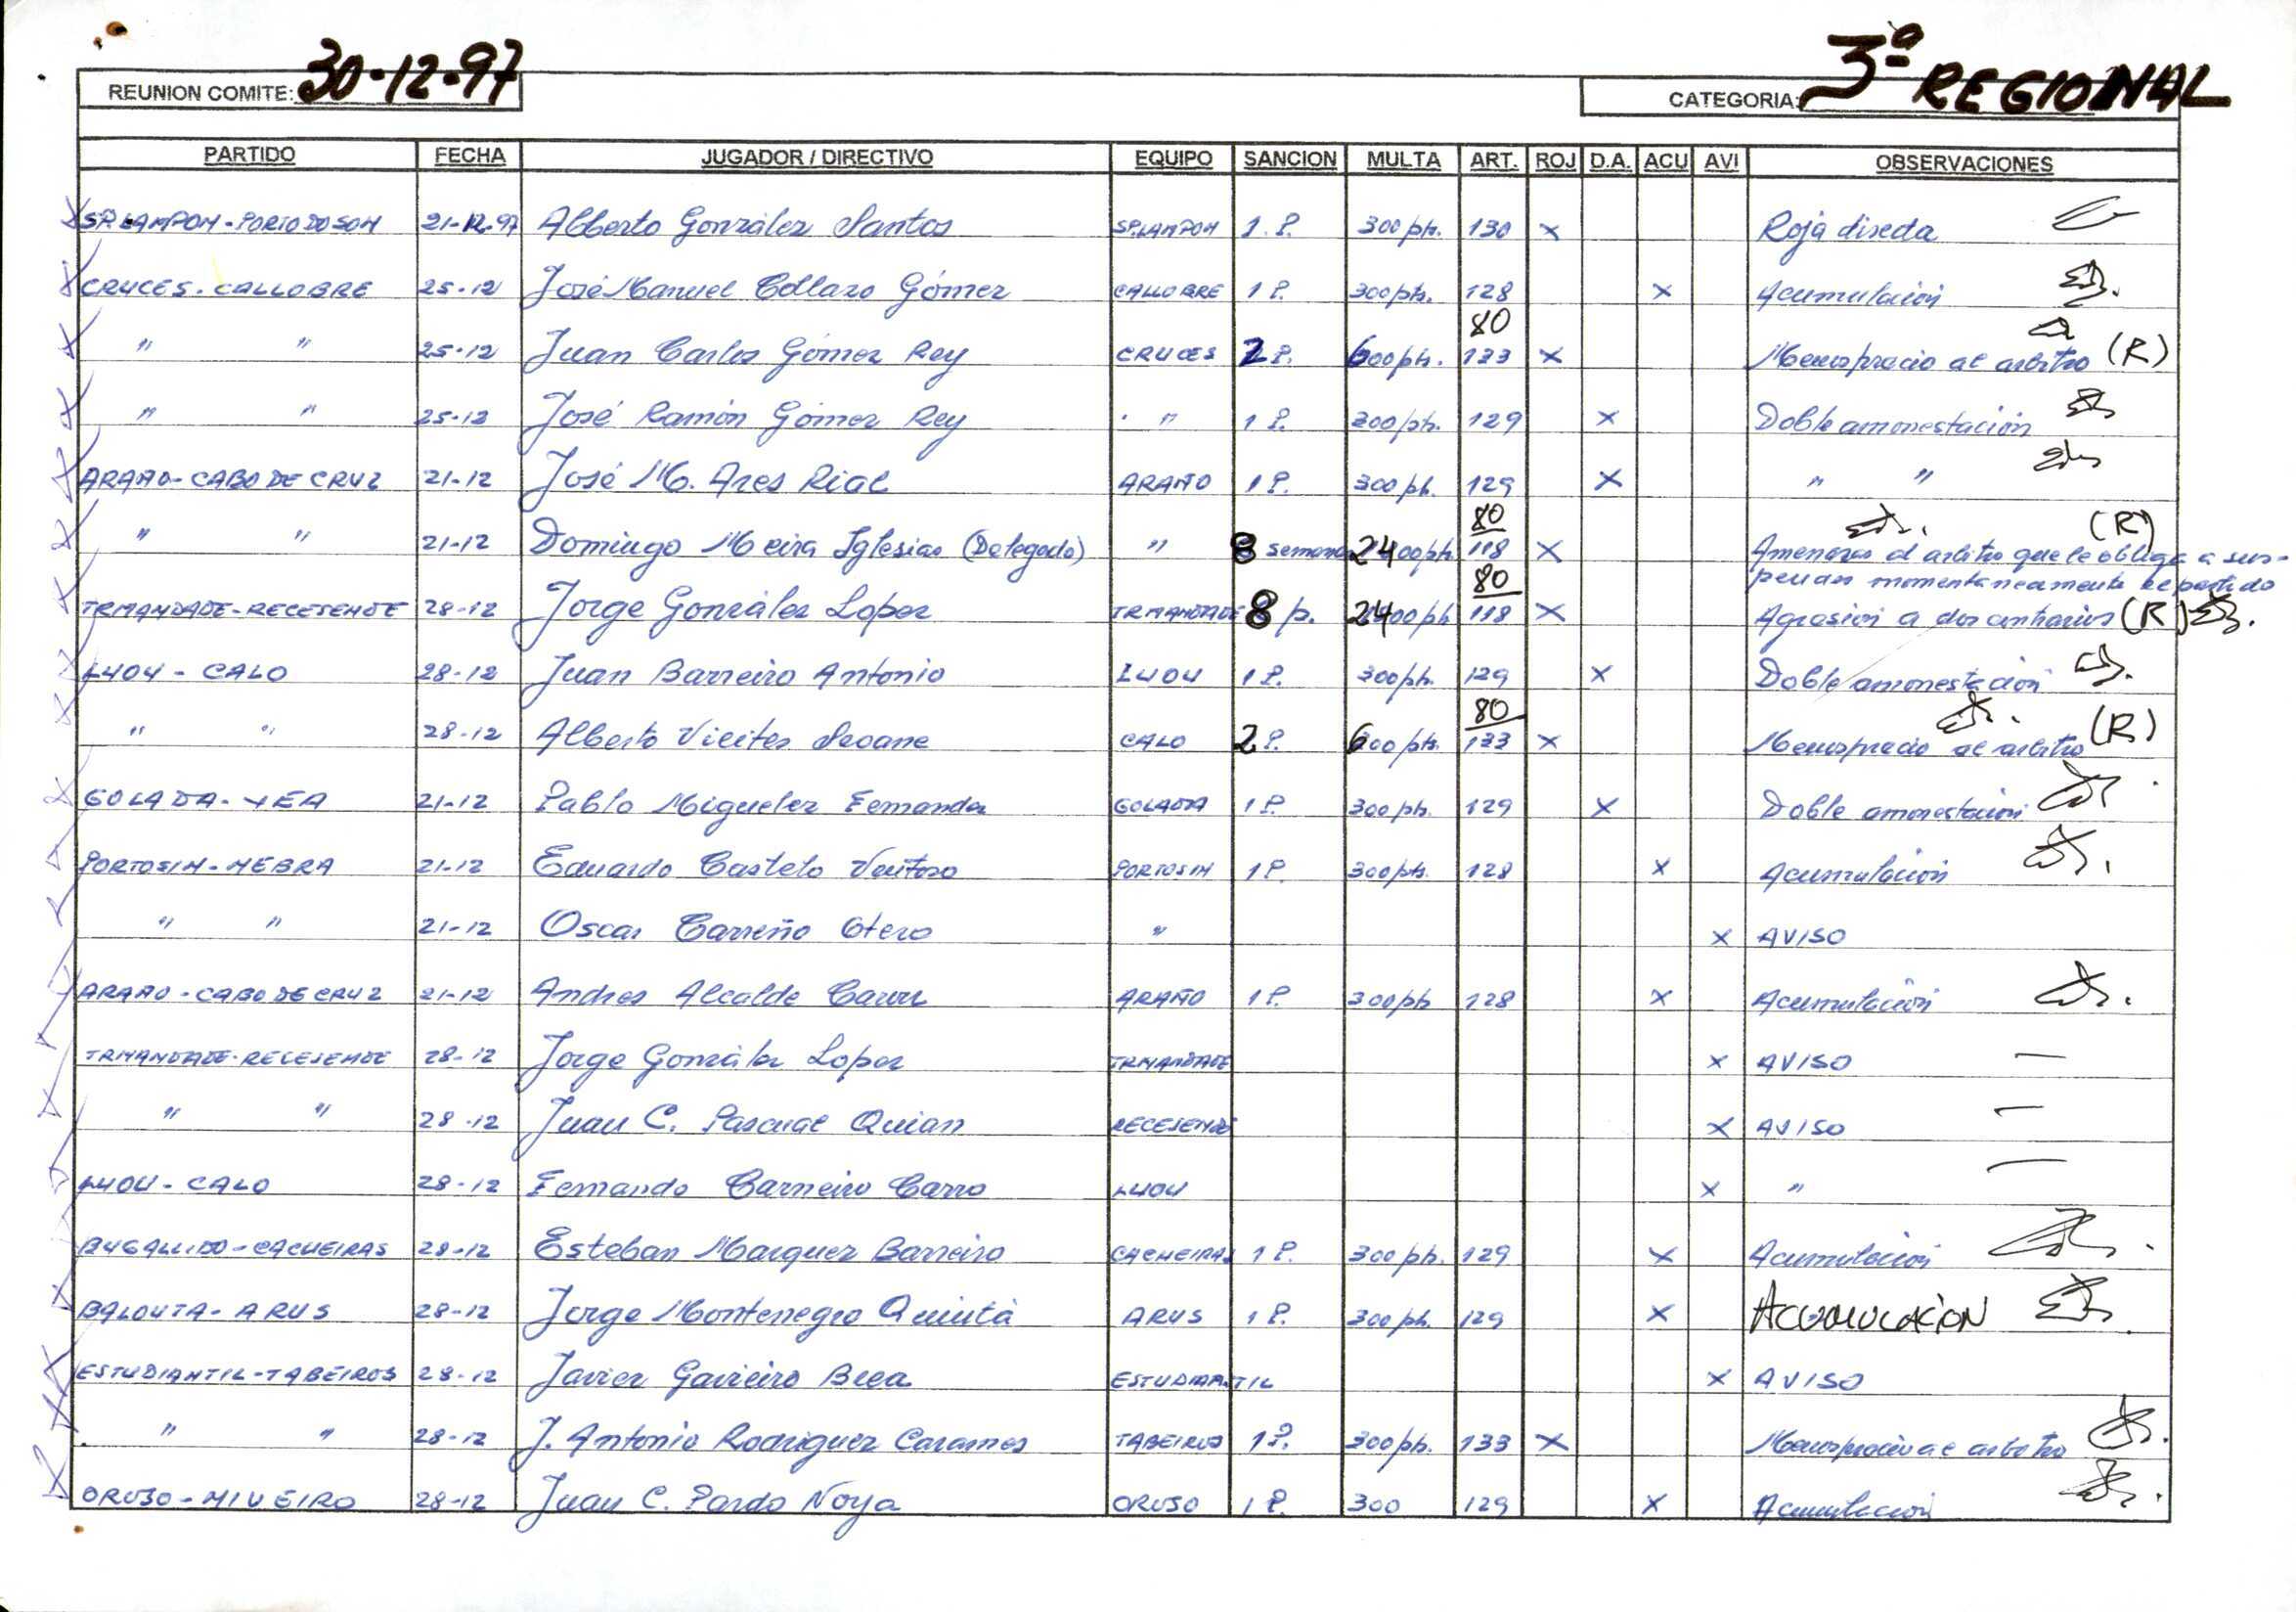 REUNION COMITE: 30-12-97 CATEGORIA: 3ª REGIONAL
PARTIDO FECHA JUGADOR / DIRECTIVO EQUIPO SANCION MULTA ART. ROJ D.A. ACU AVI OBSERVACIONES
SP. LAMPON - PORTO DO SON 21-12-97 Alberto González Santos SP. LAMPON 1 P. 300 pts. 130 X Roja directa
CRUCES - CALLOBRE 25-12 José Manuel Collazo Gómez CALLOBRE 1 P. 300 pts. 128 X Acumulación
80
" " 25-12 Juan Carlos Gómez Rey CRUCES 2 P. 600 pts. 133 X Menosprecio al arbitro (R)
" " 25-12 José Ramón Gómez Rey " " 1 P. 300 pts. 129 X Doble amonestación
ARAÑO - CABO DE CRUZ 21-12 José M. Ares Rial ARAÑO 1 P. 300 pts. 129 X " "
80 (R)
" " 21-12 Domingo Meira Iglesias (Delegado) " 8 semanas 2400 pts 118 X Amenazas al arbitro que le obliga a sus-
pender momentaneamente el partido
80
IRMANDADE - RECESENDE 28-12 Jorge González Lopez IRMANDADE 8 p. 2400 pts 118 X Agresion a dos contrarios (R)
LUOU - CALO 28-12 Juan Barreiro Antonio LUOU 1 P. 300 pts. 129 X Doble amonestación
80
" " 28-12 Alberto Vieites Seoane CALO 2 P. 600 pts. 133 X Menosprecio al arbitro (R)
GOLADA - VEA 21-12 Pablo Miguelez Fernandez GOLADA 1 P. 300 pts. 129 X Doble amonestación
PORTOSIN - NEBRA 21-12 Eduardo Castelo Ventoso PORTOSIN 1 P. 300 pts. 128 X Acumulación
" " 21-12 Oscar Carreño Otero " X AVISO
ARAÑO - CABO DE CRUZ 21-12 Andres Alcalde ARAÑO 1 P. 300 pts 128 X Acumulación
IRMANDADE - RECESENDE 28-12 Jorge González Lopez IRMANDADE X AVISO
" " 28-12 Juan C. Pascual Quian RECESENDE X AVISO
LUOU - CALO 28-12 Fernando Carneiro Carro LUOU X "
BUGALLIDO - CACHEIRAS 28-12 Esteban Marquez Barreiro CACHEIRAS 1 P. 300 pts. 129 X Acumulación
BALOUTA - ARUS 28-12 Jorge Montenegro Quintá ARUS 1 P. 300 pts. 129 X ACUMULACIÓN
ESTUDIANTIL - TABEIROS 28-12 Javier Gavieiro Brea ESTUDIANTIL X AVISO
" " 28-12 J. Antonio Rodriguez Caramés TABEIROS 1 P. 300 pts. 133 X Menosprecio al arbitro
ORUSO - NIVEIRO 28-12 Juan C. Pardo Noya ORUSO 1 P. 300 129 X Acumulación